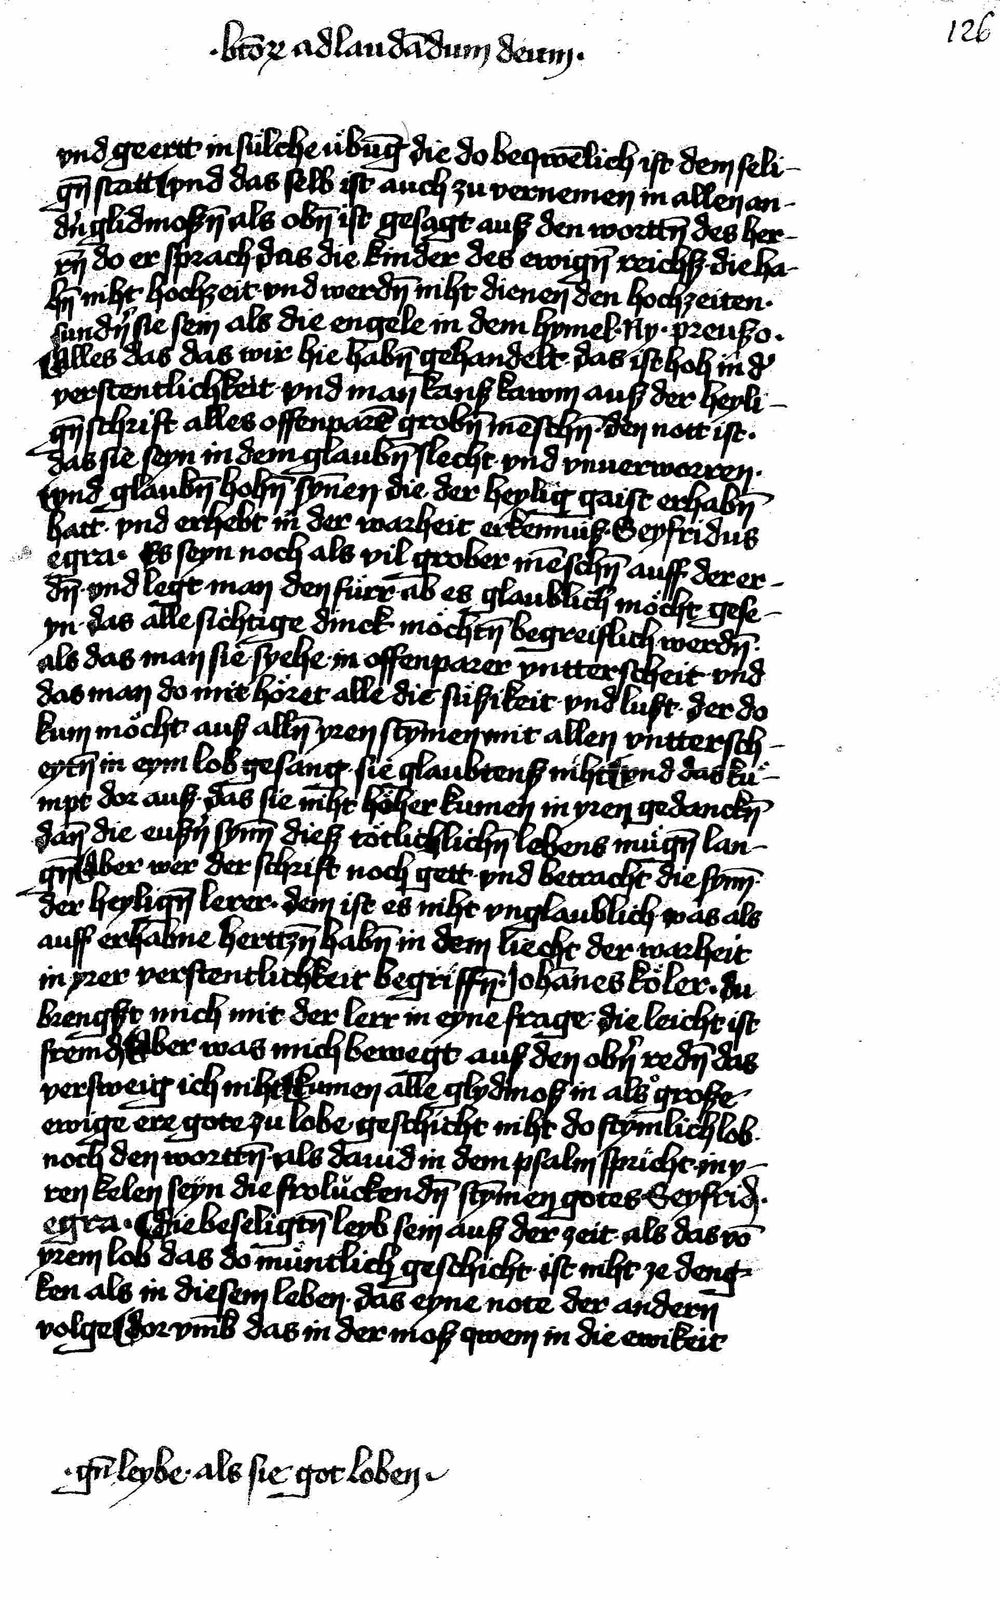 126
·btōꝝ ad laudādum deum·
vnd geertt in sülche übūg die do beqwēlich ist dem seli-
gn̄ statt vnd das selb ist auch zu vernemen in allen an-
dn̄ glidmoßn̄ als obn̄ ist gesagt auß den worttn̄ des her-
rn̄ do er sprach das die kinder des ewign̄ reichß die ha-
bn̄ niht hochzeit vnd werdn̄ niht dienen den hochzeiten·
sundn̄ sie sein als die engele in dem hymel· Ny· preußo·
Alles das das wir hie habn̄ gehandelt· das ist hoh in d'
verstentlichkeit· vnd man kanß kawm auß der heyli-
gn̄ schrift alles offenparē grobn̄ mēschn̄· den nott ist·
das sie seyn in dem glaubn̄ slecht· vnd vnuerworren·
vnd glaubn̄ hohn̄ synnen die der heylig gaist erhabn̄
hatt· vnd erhebt in der warheit erkennūß· Seyfridus
egra· Es seyn noch als vil grober mēschn̄ auff der er-
dn̄ vnd legt man den fürr ab es glaublich möcht gese-
yn· das alle sichtige dinck möchtn̄ begreiflich werdn̄·
als das man sie syehe in offenparer vntterscheit vnd
das man do mit höret alle die süßikeit vnd lust· der do
kum möcht auß alln̄ yren stymen mit allen vnttersch-
eytn̄ in eym lob gesang· sie glaubtenß niht vnd das kü-
mpt dor auß· das sie niht höher kumen in yren gedanckn̄
dan̄ die eußn̄ synn̄ dieß tötlichlichn̄ lebens mügn̄ lan-
gn̄ Aber wer der schrift noch gett· vnd betracht die synn̄
der heylign̄ lerer· dem ist es niht vnglaublich was als
auff erhabne herttzn̄ habn̄ in dem liecht der warheit
in yrer verstentlichkeit begriffn̄· Johānes köler· du
brengst mich mit der lerr in eyne frage die leicht ist
fremd Aber was mich bewegt auß den obn̄ redn̄ das
versweig ich niht kumen alle glydmoß in als große
ewige ere gote zu lobe· geschicht niht do stymlich lob·
noch den worttn̄ als dauid in dem psalm spricht· in y-
ren kelen seyn die frolückendn̄ stymen gotes· Seyfrid·
egra· die beseligtn̄ leyb sein auß der zeit· als das vō
yrem lob das do müntlich geschicht· ist niht ze deng-
ken als in diesem leben· das eyne note der andern
volge dor vmb das in der moß qwem in die ewikeit
·gn̄ leybe· als sie got loben·